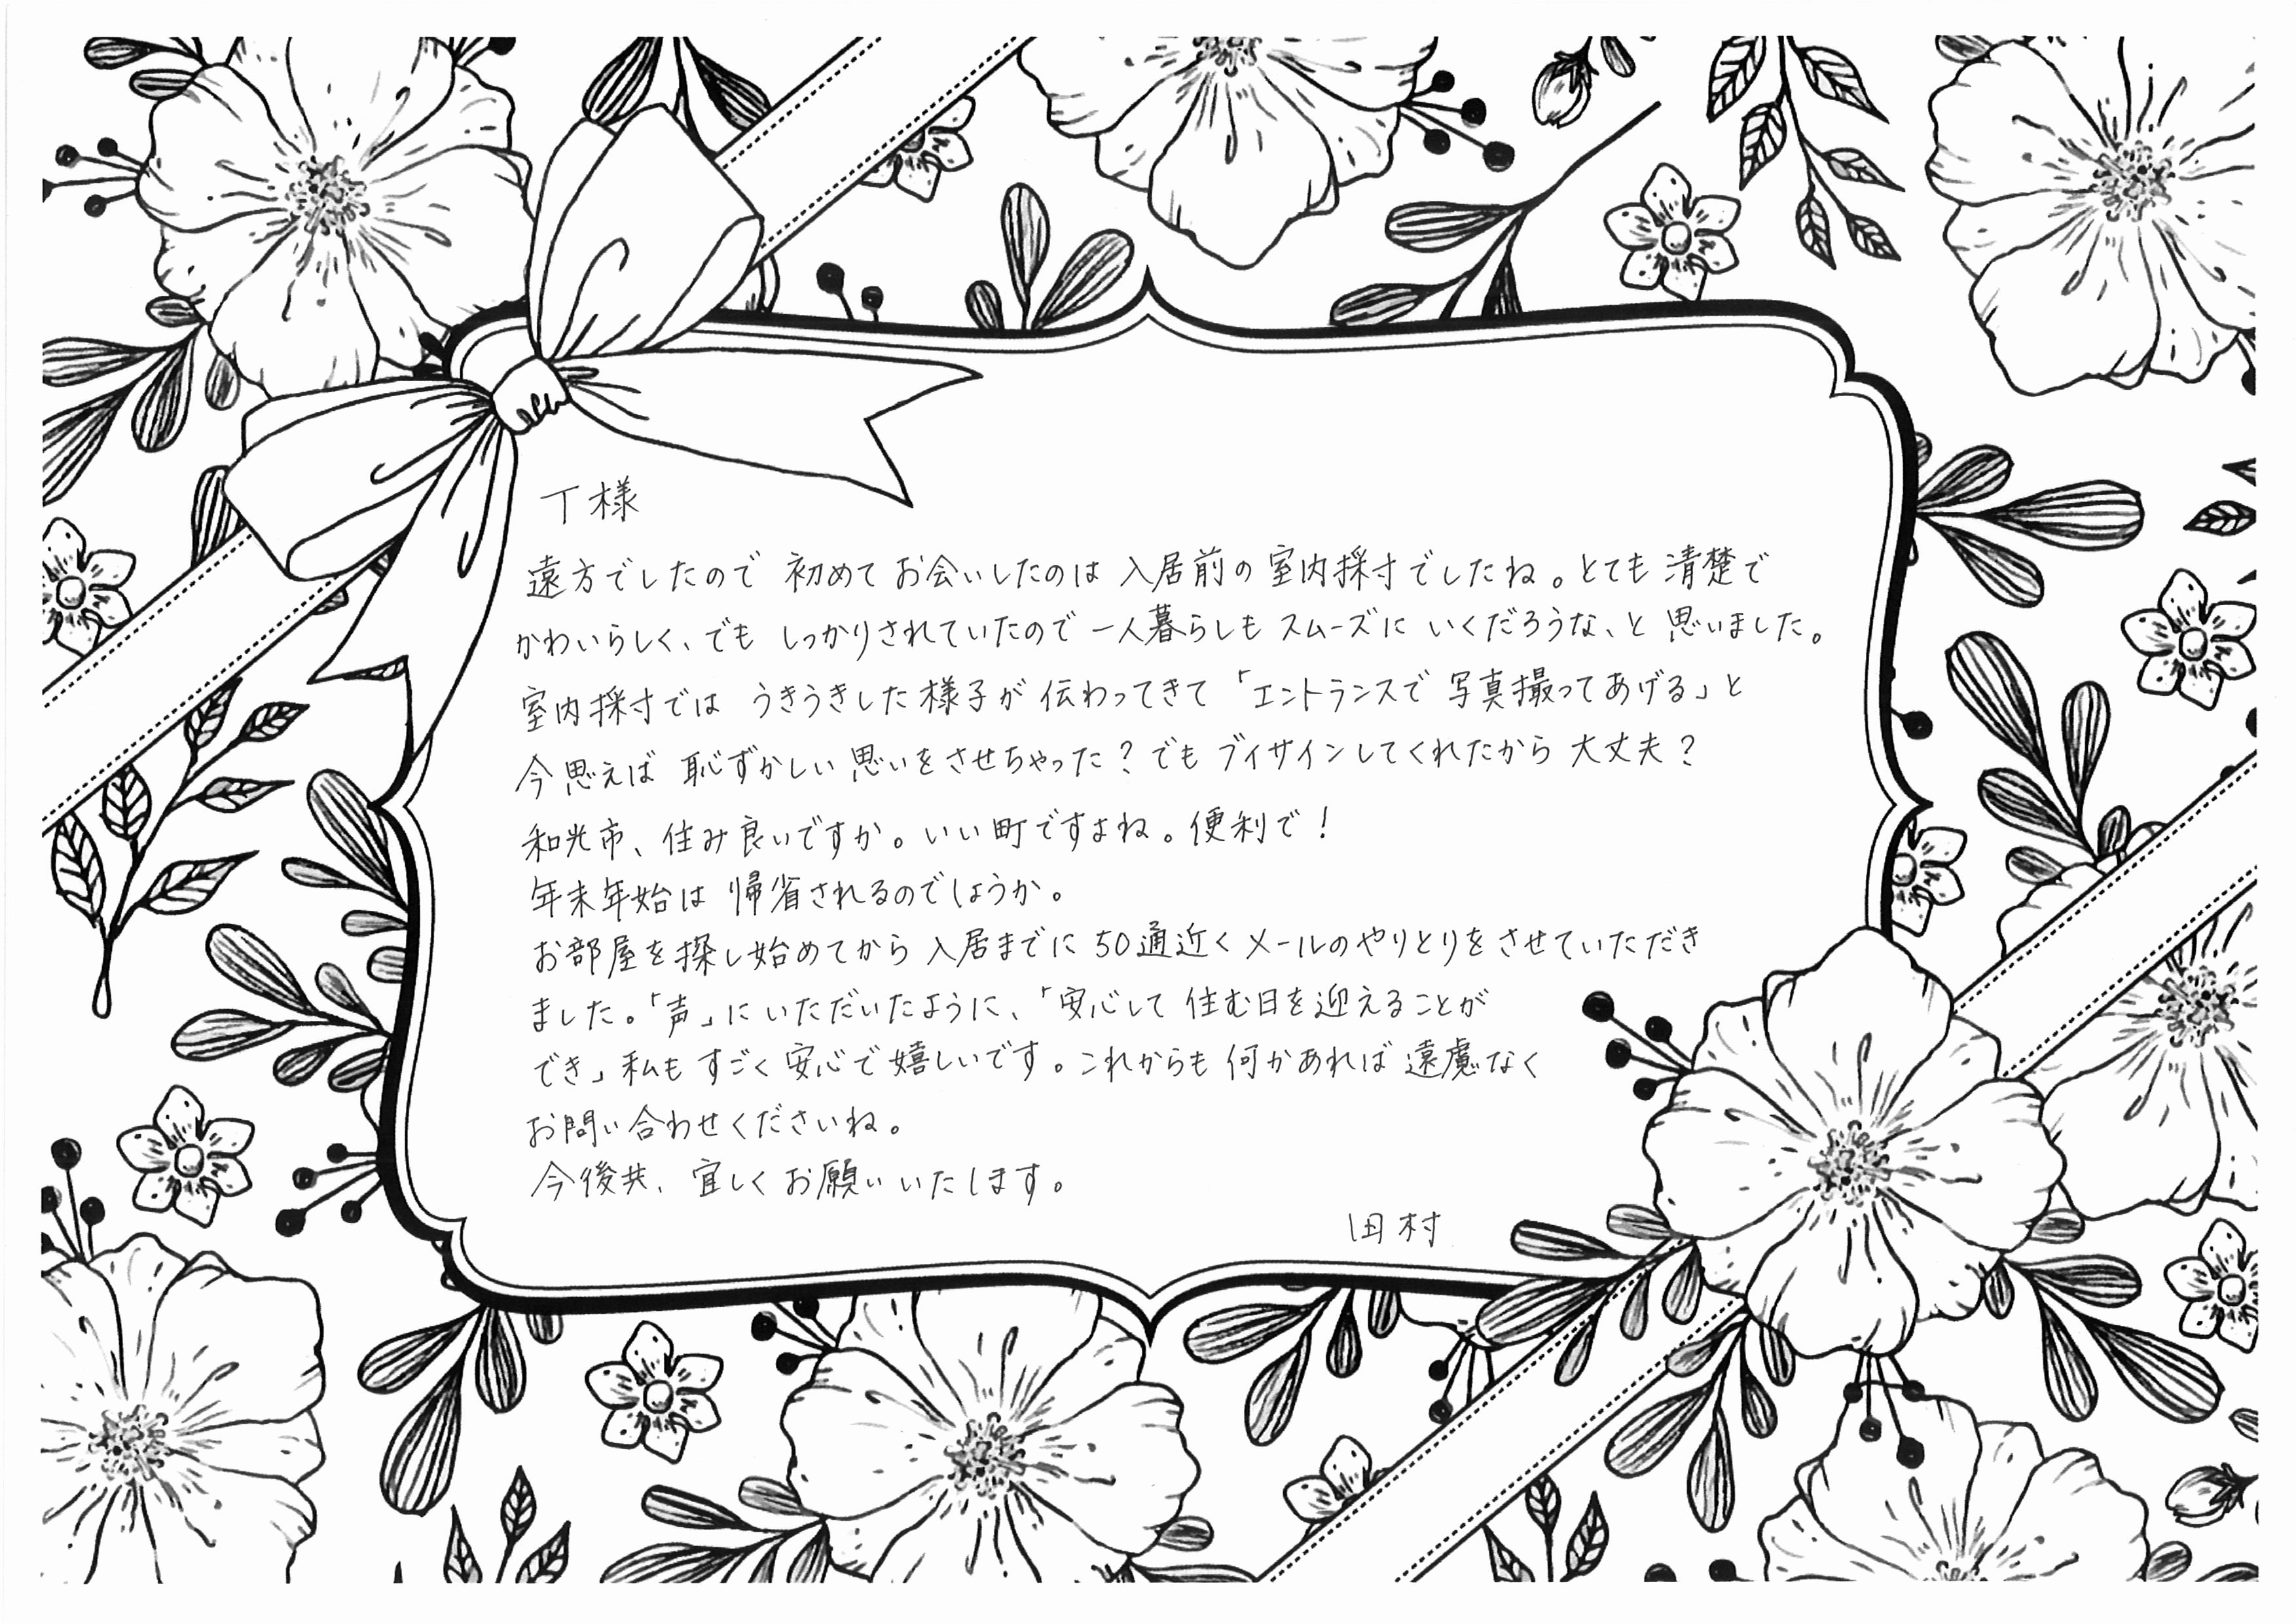 T様
遠方でしたので 初めて お会いしたのは 入居前の 室内採寸でしたね。とても 清楚で
かわいらしく、でも しっかりされていたので 一人暮らしも スムーズに いくだろうな、と 思いました。
室内採寸では うきうきした 様子が 伝わってきて 「エントランスで 写真撮ってあげる」と
今思えば 恥ずかしい 思いをさせちゃった？でも ブイサインしてくれたから 大丈夫？
和光市、住み良いですか。いい町ですよね。便利で！
年末年始は 帰省されるのでしょうか。
お部屋を探し始めてから 入居までに 50通近く メールのやりとりを させていただき
ました。「声」に いただいたように、「安心して 住む日を迎えることが
でき」私も すごく 安心で 嬉しいです。これからも 何かあれば 遠慮なく
お問い合わせくださいね。
今後共、宜しく お願い いたします。
田村